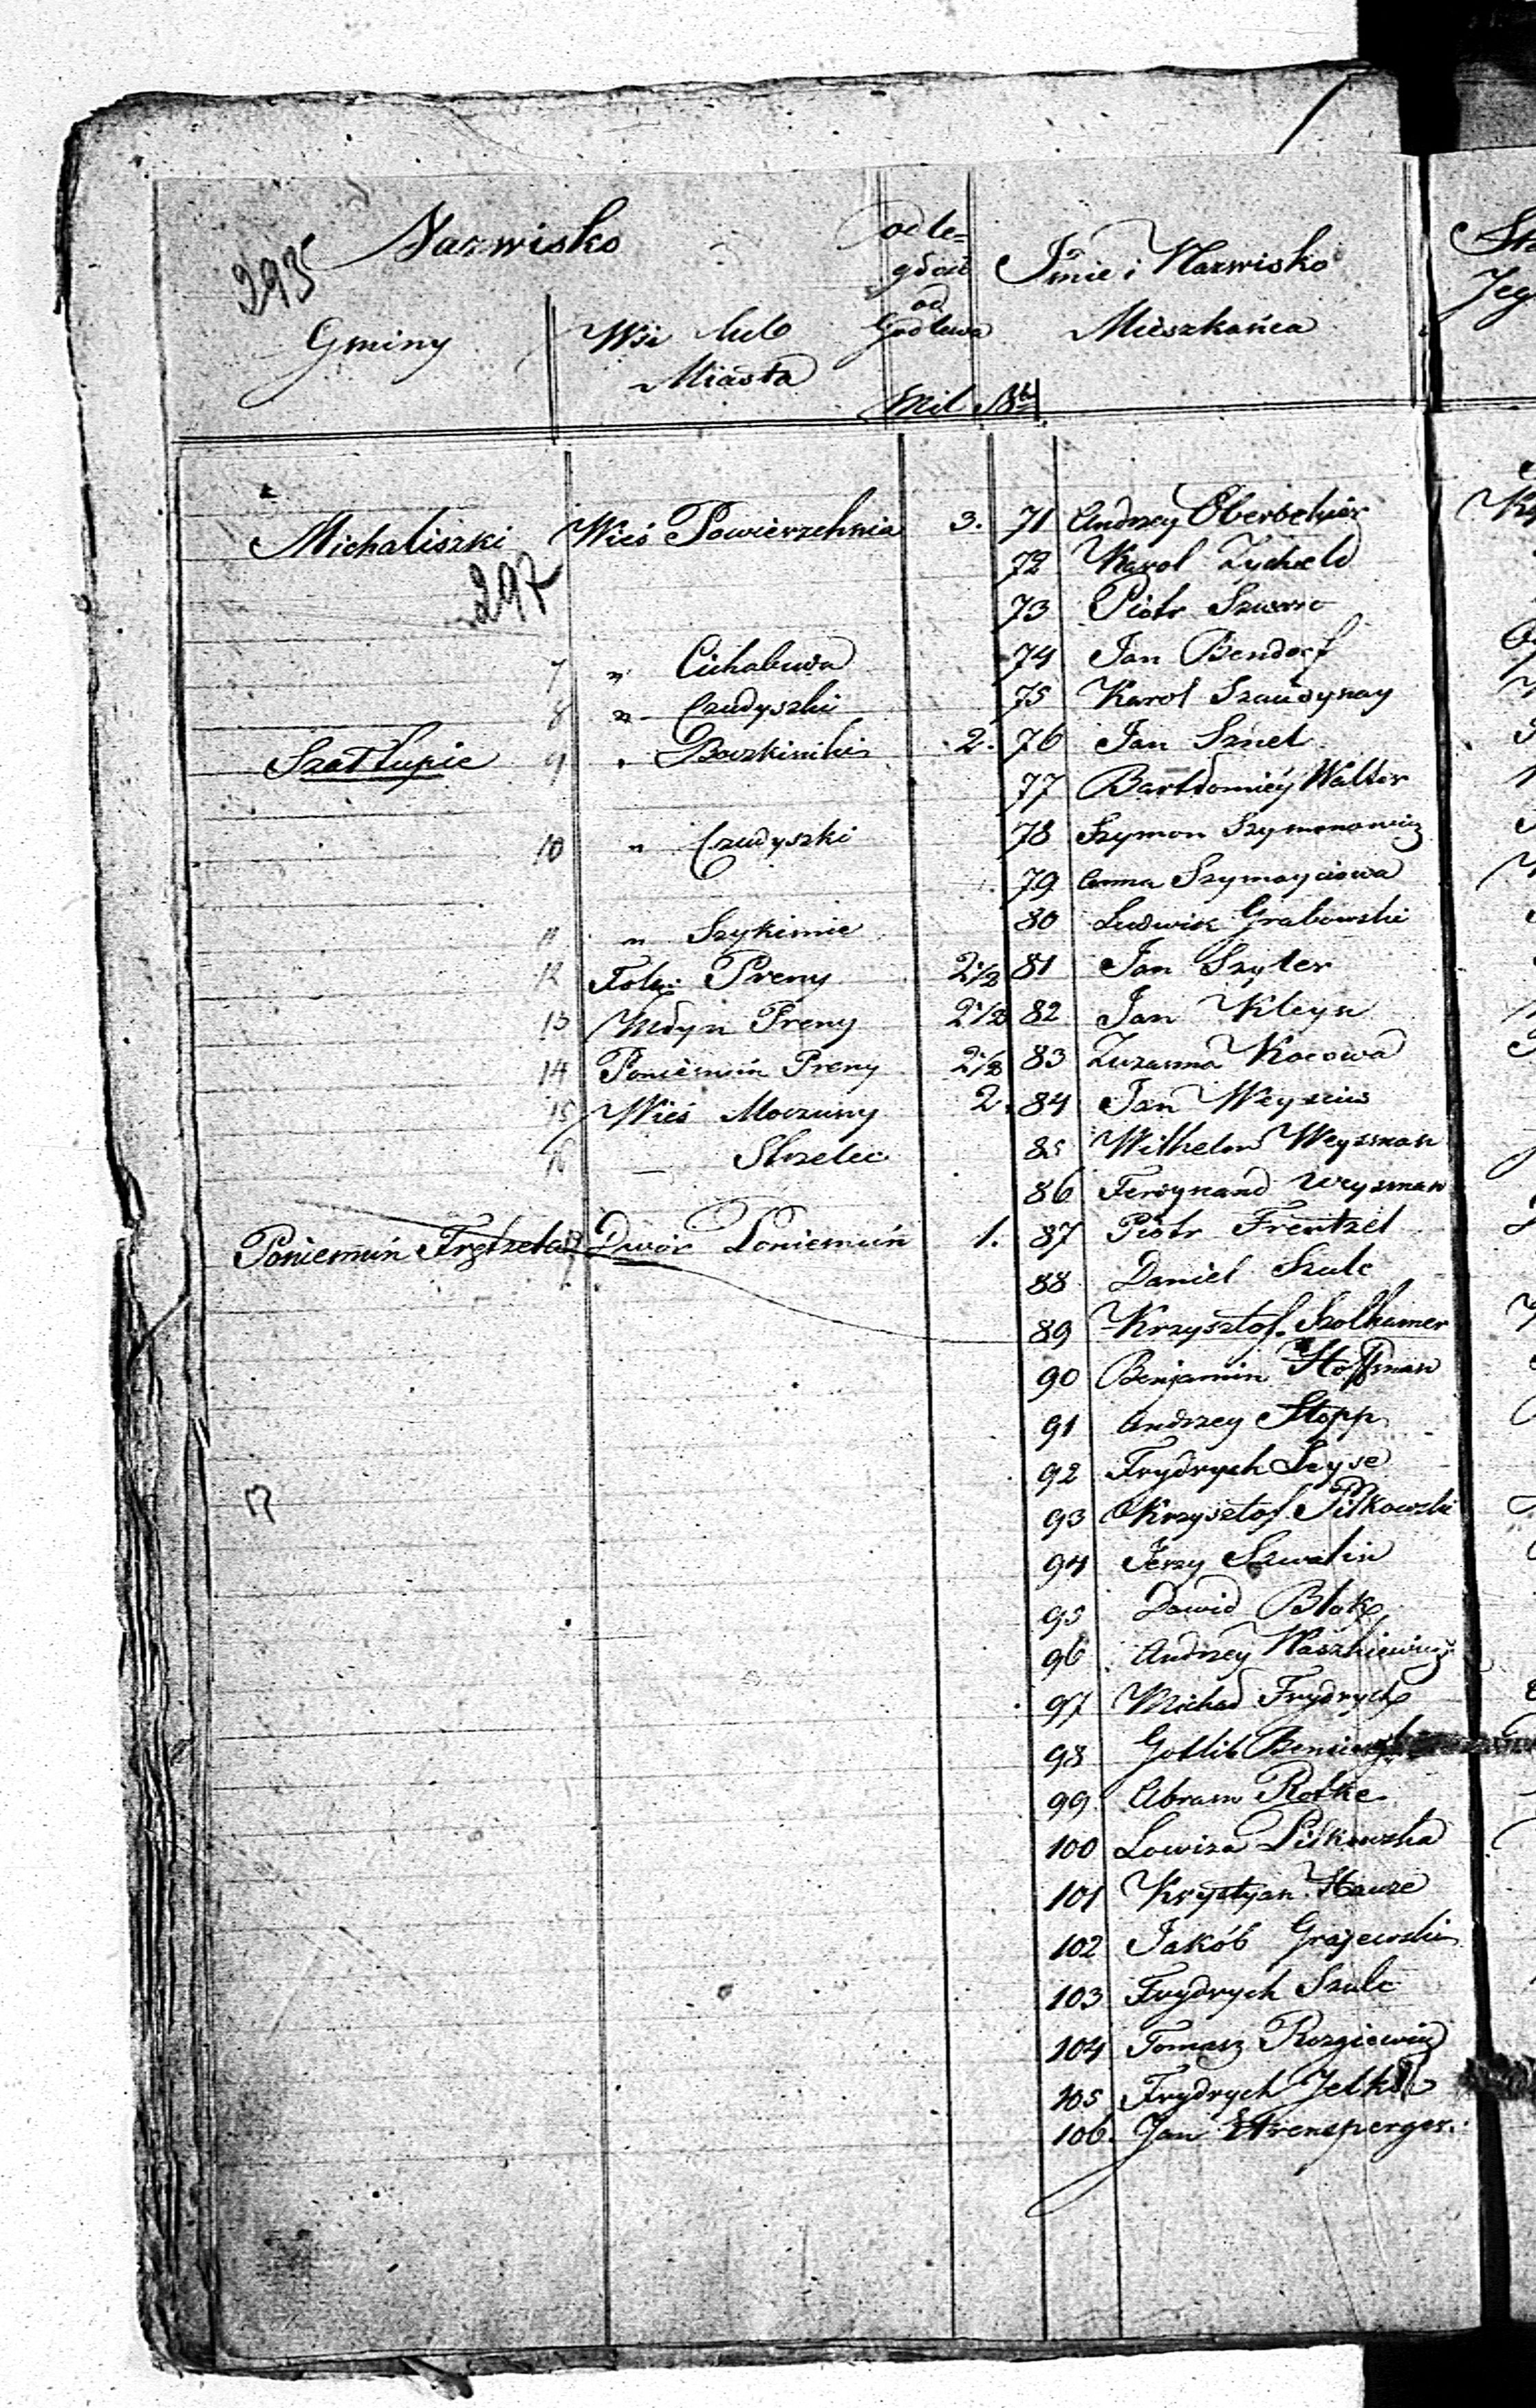 293
Nazwisko
Gminy
Wsi lub Miasta
odle=
głość
od
Godlewa
Mil
Imie i Nazwisko
Mieszkańca
Michaliszki Wieś Powierzchnia 3. 71 Andrzey
297
72 Karol Zycheld
73 Piotr
7 " Cichabuwa 74 Jan Bendorf
8 " Czudyszki 75 Karol
Szałtupie 9 " 2. 76 Jan Sznel
77 Bartłomiéy Walter
10 " Czudyszki 78 Szymon Szymonowicz
79 Anna Szymayciowa
11 " Szykimie 80 Ludwik Grabowski
12 Folw: Preny 2 1/2 81 Jan Szyler
13 Młyn Preny 2 1/2 82 Jan Kleyn
14 Poniemuń Preny 2 1/2 83 Zuzanna Kocowa
15 Wieś Moczuny 2. 84 Jan
16 — Strzelec 85 Wilhelm Weysman
86 Ferdynand Weysman
Poniemuń Frętzela Dwór Poniemuń 1. 87 Piotr Frentzel
88 Daniel Szulc
89 Krzysztof Szolkamer
90 Benjamin Hoffman
91 Andrzey Stopp
92 Frydrych Leyse
93 Krzysztof Pilkowski
94 Jerzy Szwalin
95 Dawid Blok
96 Andrzey Waszkiewicz
97 Michał Frydrych
98 Gotlib
99 Abram Rotke
100 Lowiza Pilkowska
101 Krystyan Hauze
102 Jakób Grajewski
103 Frydrych Szulc
104 Tomasz Rozgiewicz
105 Frydrych
106. Jan